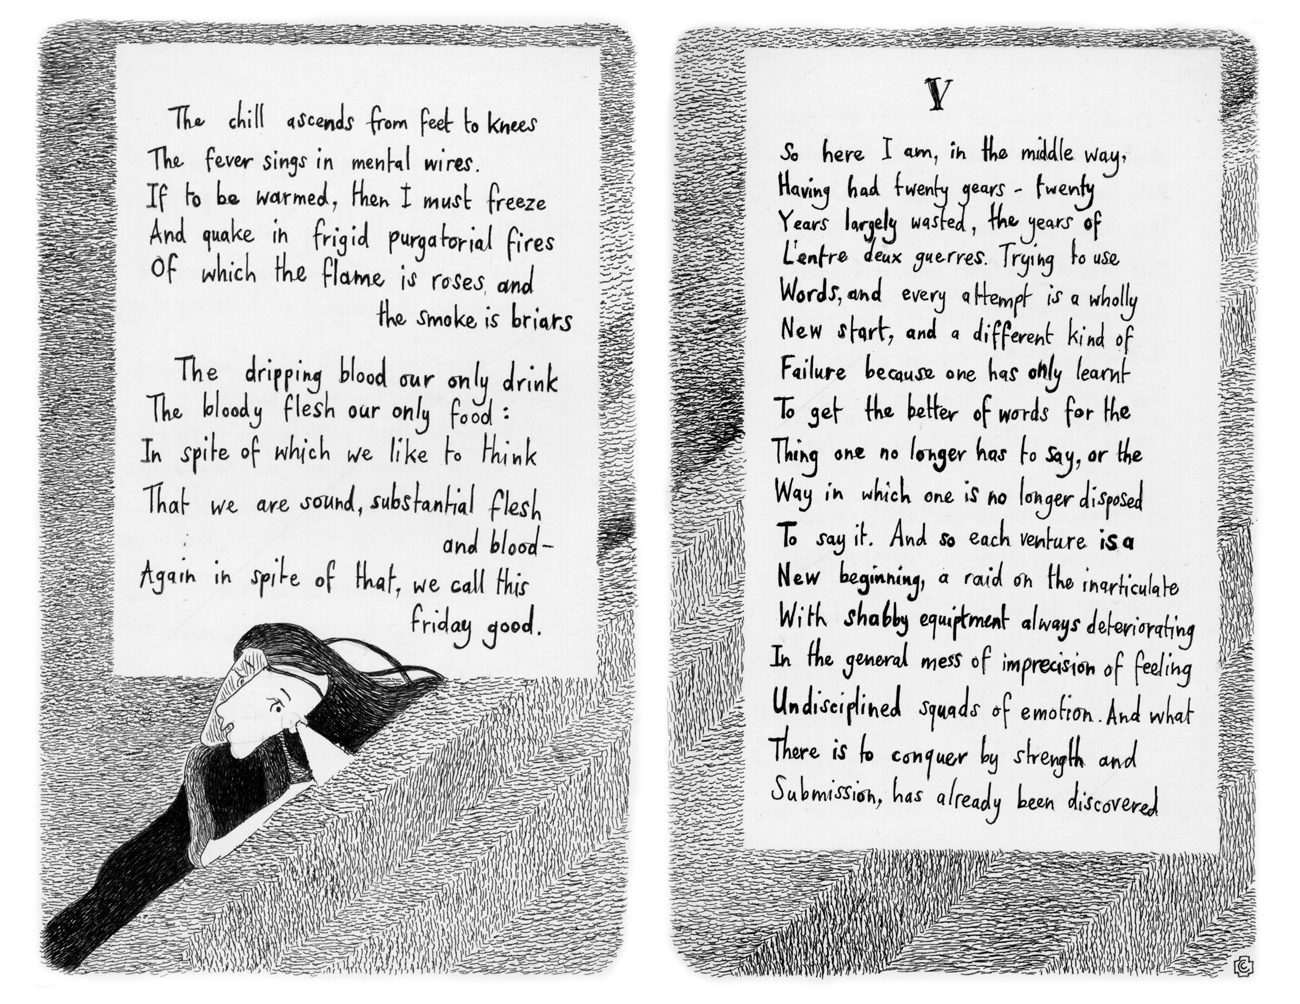 The chill ascends from feet to knees
The fever sings in mental wires.
If to be warmed, then I must freeze
And quake in frigid purgatorial fires
Of which the flame is roses, and
the smoke is briars
The dripping blood our only drink
The bloody flesh our only food:
In spite of which we like to think
That we are sound, substantial flesh
and blood-
Again in spite of that, we call this
friday good.
V
So here I am, in the middle way,
Having had twenty years - twenty
Years largely wasted, the years of
L'entre deux guerres. Trying to use
Words, and every attempt is a wholly
New start, and a different kind of
Failure because one has only learnt
To get the better of words for the
Thing one no longer has to say, or the
Way in which one is no longer disposed
To say it. And so each venture is a
New beginning, a raid on the inarticulate
With shabby equiptment always deteriorating
In the general mess of imprecision of feeling
Undisciplined squads of emotion. And what
There is to conquer by strength and
Submission, has already been discovered
C